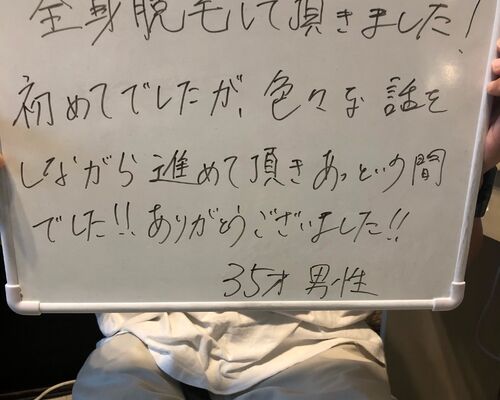 全身脱毛して頂きました!
初めてでしたが、色々な話を
しながら進めて頂きあっという間
でした!!ありがとうございました!!
35才 男性